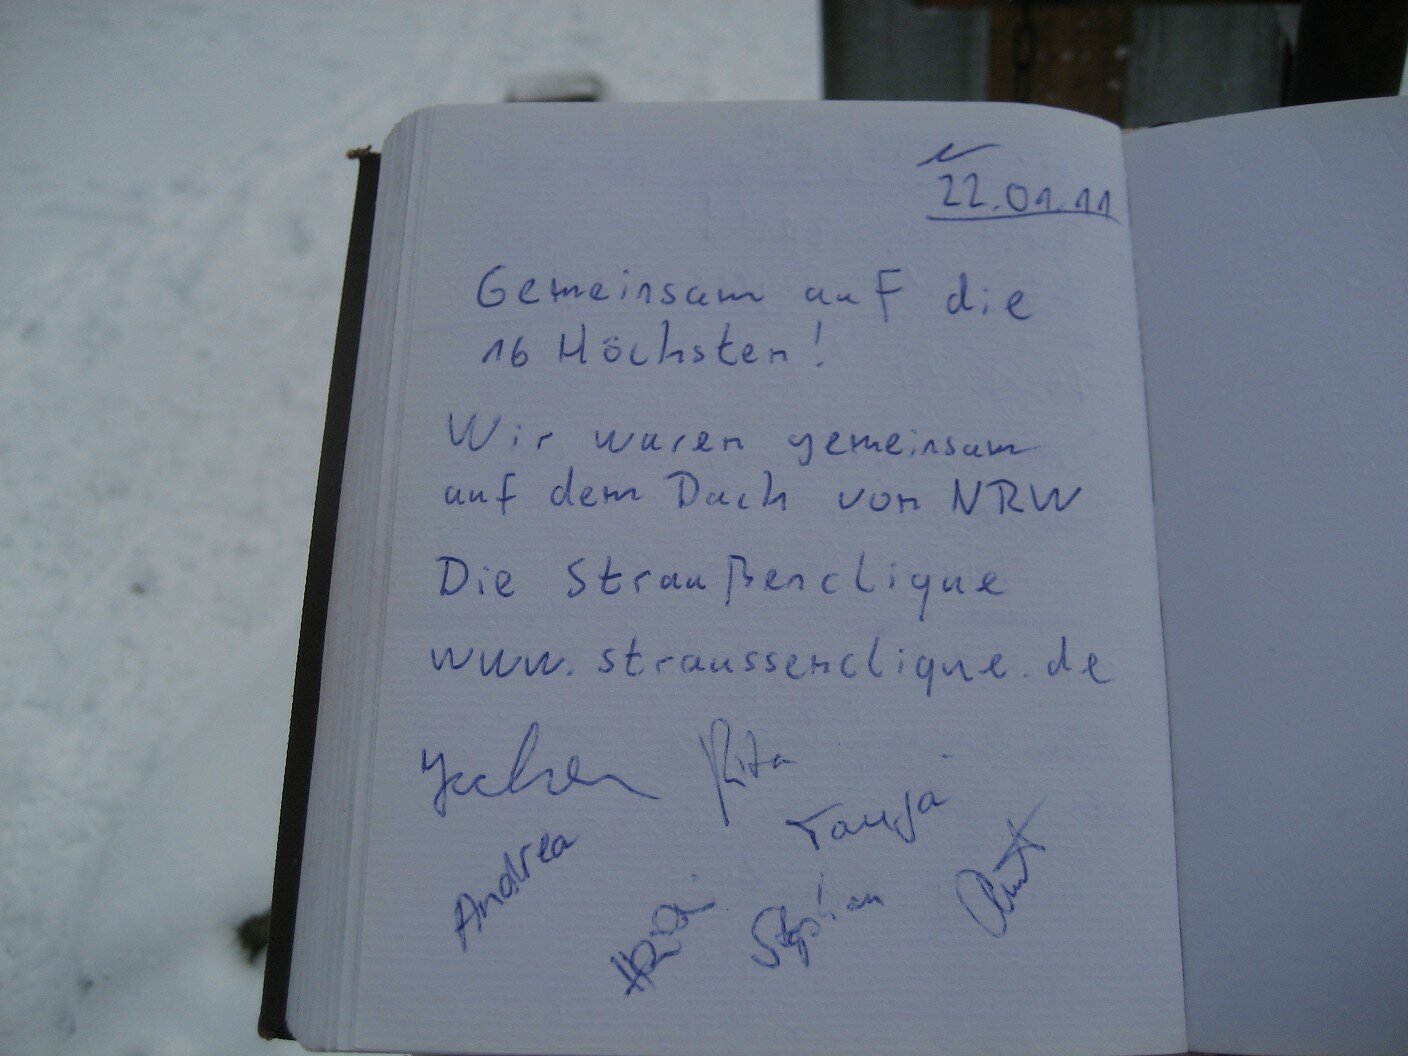 22.01.11
Gemeinsam auf die
16 Höchsten!
Wir waren gemeinsam
auf dem Dach von NRW
Die Straußenclique
www.straussenclique.de
Jochen Rita
Andrea Tanja
Heidi Stephan